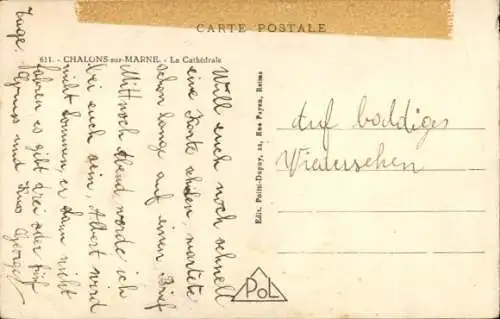 CARTE POSTALE
611. - CHALONS-sur-MARNE. - La Cathédrale
Will euch noch schnell
eine Karte senden, wartete
schon lange auf einen Brief
Mittwoch Abend werde ich
bei euch sein, Albert wird
nicht kommen, er kann nicht
fahren es gibt drei oder fünf
Tage.
Gruss und Kuss George
Auf baldiges
Wiedersehen
Edit. Poitel-Dupuy, 22, Rue Payen, Reims
POL